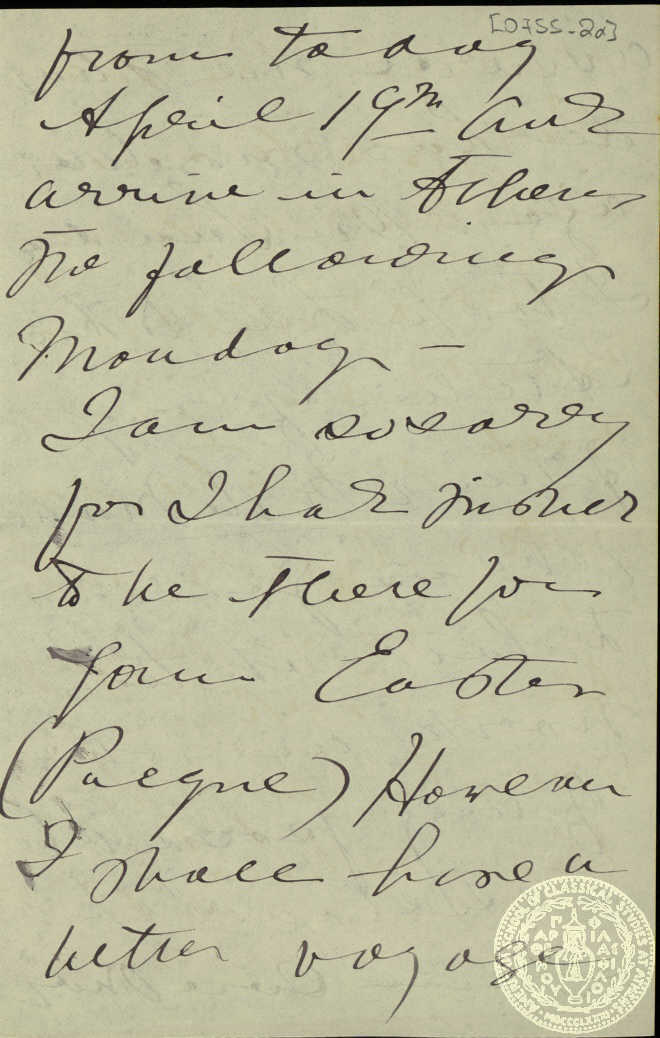 [0755-2a]
from today
April 19th and
arrive in Athens
the following
Monday —
I am so sorry
for I had wished
to be there for
your Easter
(Pacque) However
I shall have a
better voyage
AMERICAN SCHOOL OF CLASSICAL STUDIES AT ATHENS
MDCCCLXXXI